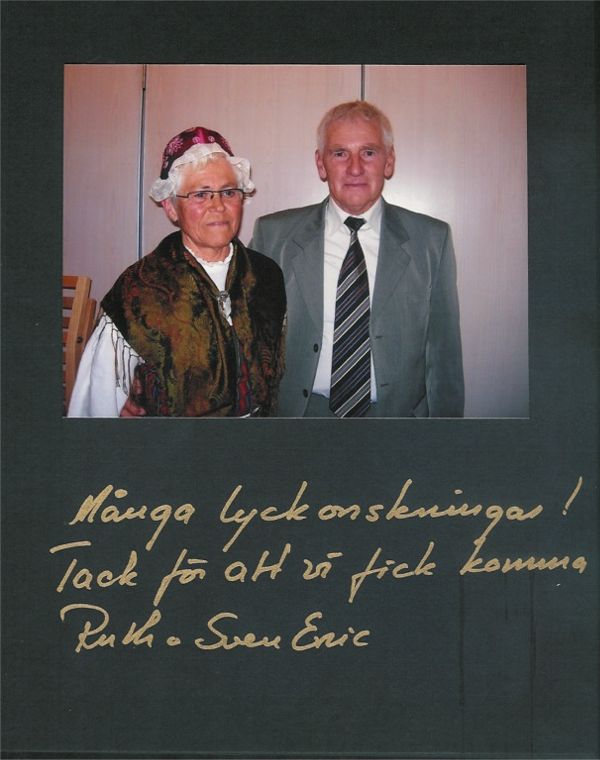 Många lyckonskningar!
Tack för att vi fick komma
Ruth o Sven Eric